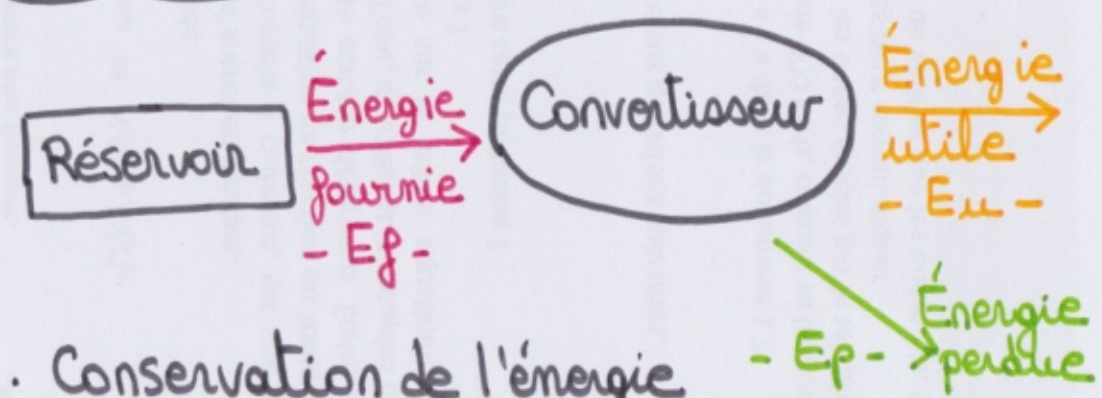 Réservoir
Énergie
fournie
- Ef -
Convertisseur
Énergie
utile
- Eu -
Énergie
perdue
- Ep -
. Conservation de l'énergie